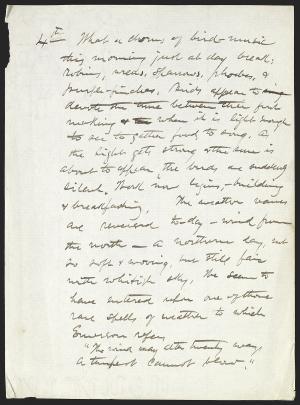 4th What a chorus of bird-music
this morning just at day break:
robins, reeds, sparrows, phoebes, &
purple-finches. Birds appear to
devote the time between their first
waking & when it is light enough
to see to gather food to song. As
the light gets strong & the sun is
about to appear the birds are suddenly
silent. Work now begins,-building
& breakfasting. The weather vanes
are reversed to-day - wind from
the north - a northern day, not
so soft & wooing, but still fair
with whitish sky. We seem to
have entered upon one of those
rare spells of weather to which
Emerson refers,
"The wind may alter twenty ways,
A tempest cannot blow."